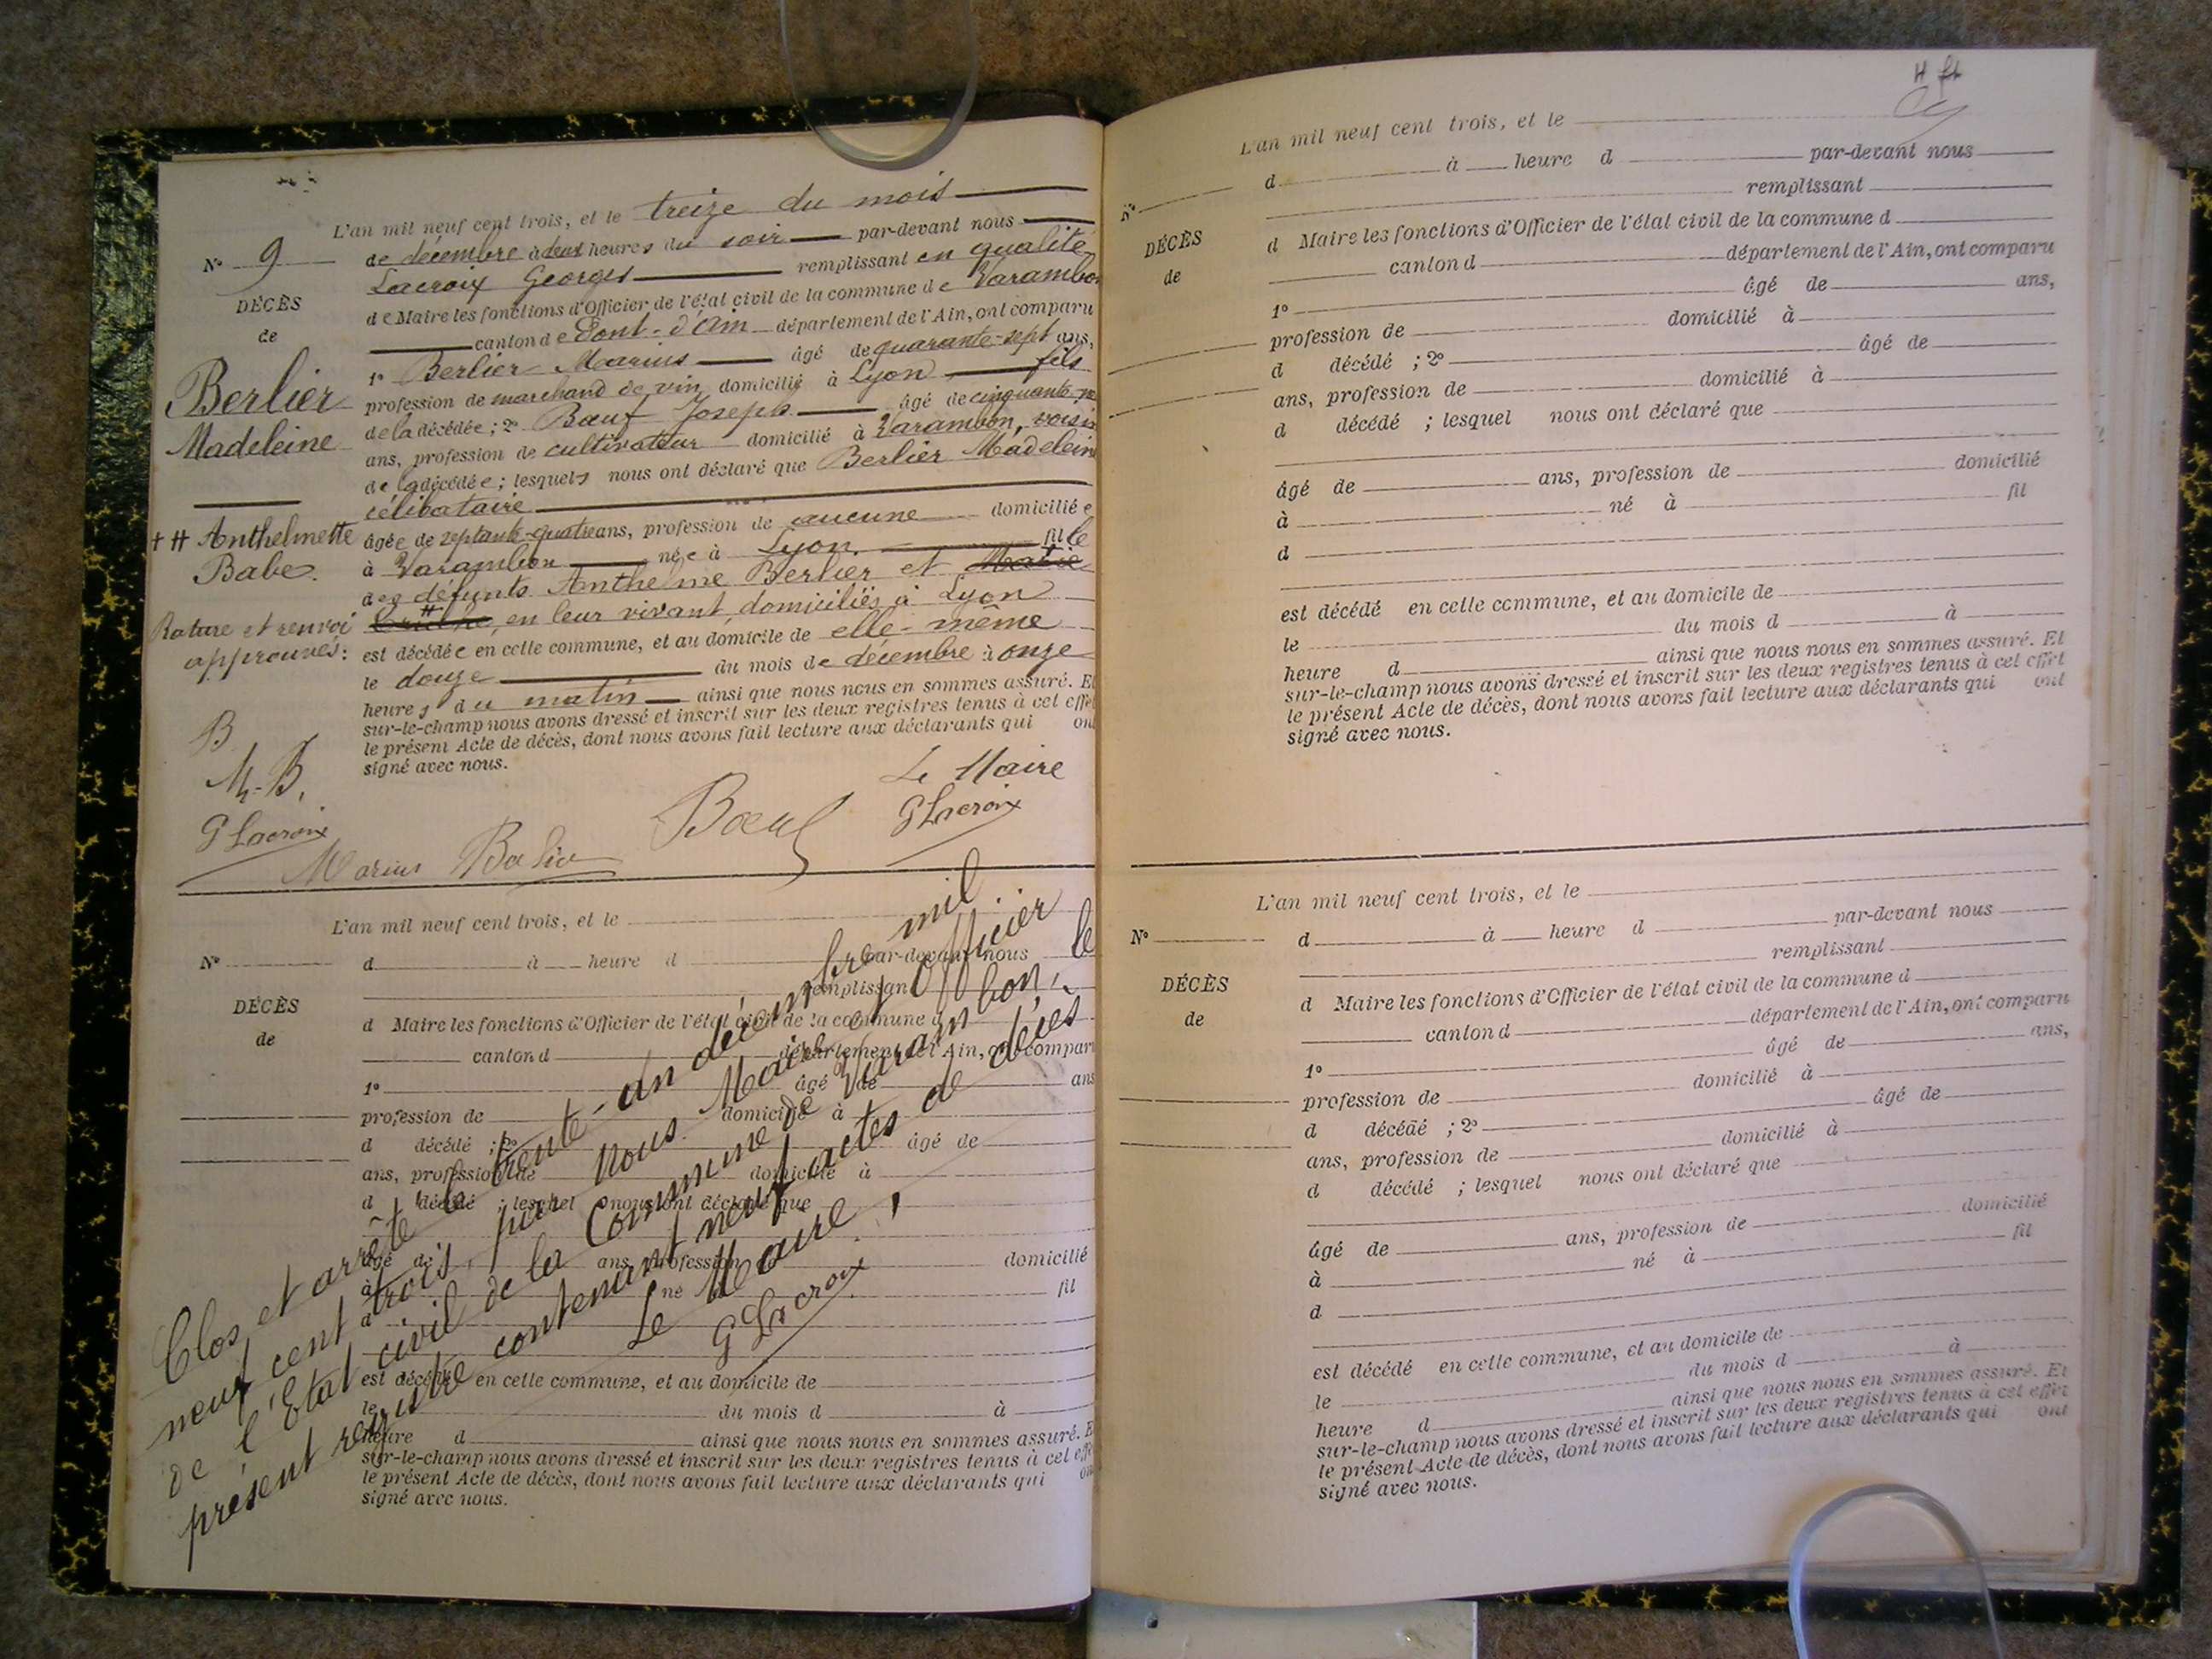 L'an mil neuf cent trois, et le treize du mois
N° 9
de décembre à deux heures du soir par-devant nous
Lacroix Georges remplissant en qualité
DÉCÈS
de Maire les fonctions d'Officier de l'état civil de la commune de Varambon
de
canton de Pont-d'Ain département de l'Ain, ont comparu
1° Berlier Marius âgé de quarante-sept ans,
Berlier
profession de marchand de vin domicilié à Lyon fils
de la décédée ; 2° Bœuf Joseph âgé de cinquante
Madeleine
ans, profession de cultivateur domicilié à Varambon, voisin
de la décédée ; lesquels nous ont déclaré que Berlier Madeleine
célibataire
+ H Anthelmette
âgée de septante-quatre ans, profession de aucune domiciliée
Babe.
à Varambon née à Lyon fille
des défunts Anthelme Berlier et Marie
Rature et renvoi
en leur vivant, domiciliés à Lyon
approuvés :
est décédée en cette commune, et au domicile de elle-même
le douze du mois de décembre à onze
heures du matin ainsi que nous nous en sommes assuré. Et
sur-le-champ nous avons dressé et inscrit sur les deux registres tenus à cet effet
le présent Acte de décès, dont nous avons fait lecture aux déclarants qui ont
signé avec nous.
B
M. B.
G Lacroix
Le Maire
G Lacroix
Bœuf
Marius Berlier
L'an mil neuf cent trois, et le
N° d à heure d par-devant nous
remplissant
DÉCÈS
d Maire les fonctions d'Officier de l'état civil de la commune d
de
canton d département de l'Ain, ont comparu
1° âgé de ans
profession de domicilié à
d décédé ; 2° âgé de
ans, profession de domicilié à
d décédé ; lesquel nous ont déclaré que
âgé de ans, profession domicilié
à né fil
d
est décédé en cette commune, et au domicile de
le du mois d à
heure d ainsi que nous nous en sommes assuré. Et
sur-le-champ nous avons dressé et inscrit sur les deux registres tenus à cet effet
le présent Acte de décès, dont nous avons fait lecture aux déclarants qui ont
signé avec nous.
Clos et arrêté le trente-un décembre mil
neuf cent trois, par Nous Maire et Officier
de l'Etat civil de la Commune de Varambon, le
présent registre contenant neuf actes de décès
Le Maire,
G Lacroix
L'an mil neuf cent trois, et le
N° d à heure d par-devant nous
remplissant
DÉCÈS
d Maire les fonctions d'Officier de l'état civil de la commune d
de
canton d département de l'Ain, ont comparu
1° âgé de ans,
profession de domicilié à
d décédé ; 2° âgé de
ans, profession de domicilié à
d décédé ; lesquel nous ont déclaré que
âgé de ans, profession de domicilié
à né à fil
d
est décédé en cette commune, et au domicile de
le du mois d à
heure d ainsi que nous nous en sommes assuré. Et
sur-le-champ nous avons dressé et inscrit sur les deux registres tenus à cet effet
le présent Acte de décès, dont nous avons fait lecture aux déclarants qui ont
signé avec nous.
L'an mil neuf cent trois, et le
N° d à heure d par-devant nous
remplissant
DÉCÈS
d Maire les fonctions d'Officier de l'état civil de la commune d
de
canton d département de l'Ain, ont comparu
1° âgé de ans,
profession de domicilié à
d décédé ; 2° âgé de
ans, profession de domicilié à
d décédé ; lesquel nous ont déclaré que
âgé de ans, profession de domicilié
à né à fil
d
est décédé en cette commune, et au domicile de
le du mois d à
heure d ainsi que nous nous en sommes assuré. Et
sur-le-champ nous avons dressé et inscrit sur les deux registres tenus à cet effet
le présent Acte de décès, dont nous avons fait lecture aux déclarants qui ont
signé avec nous.